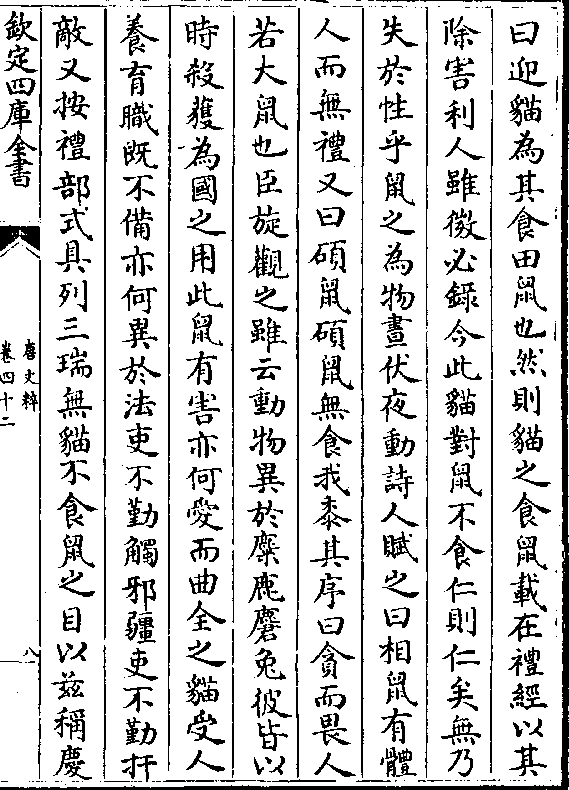 曰迎貓為其食田鼠也然則貓之食鼠載在禮經以其
除害利人雖微必錄今此貓對鼠不食仁則仁矣無乃
失於性乎鼠之為物晝伏夜動詩人賦之曰相鼠有體
人而無禮又曰碩鼠碩鼠無食我黍其序曰貪而畏人
若大鼠也臣旋觀之雖云動物異於麋鹿麏兔彼皆以
時殺獲為國之用此鼠有害亦何愛而曲全之貓受人
養育職既不備亦何異於法吏不勤觸邪疆吏不勤扞
敵又按禮部式具列三瑞無貓不食鼠之目以茲稱慶
欽定四庫全書
唐文粹
卷四十二
八